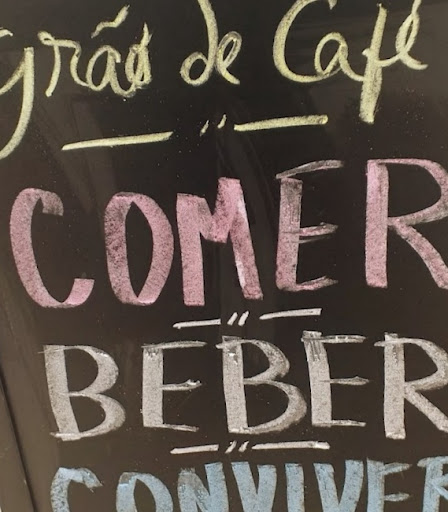 grão de Café
COMER
BEBER
CONVIVER